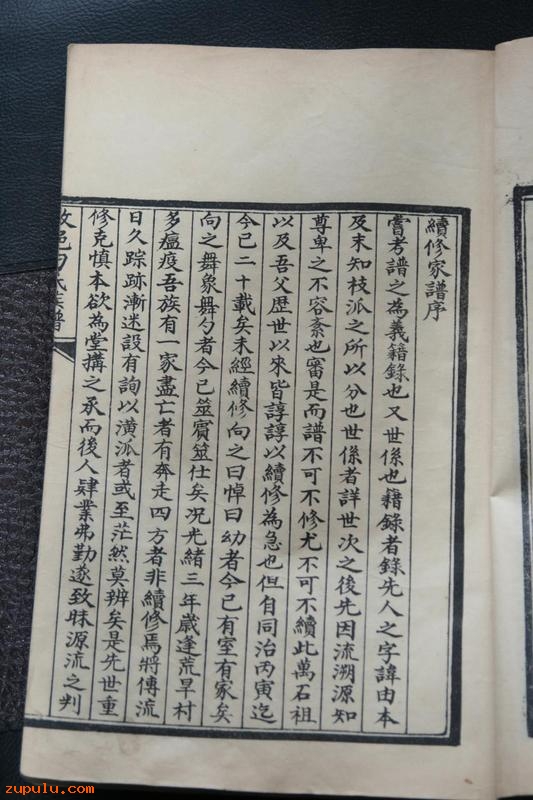 續修家譜序
嘗考譜之為義籍錄也又世係也籍錄者錄先人之字諱由本
及末知枝派之所以分也世係者詳世次之後先因流溯源知
尊卑之不容紊也審是而譜不可不修尤不可不續此萬石祖
以及吾父歷世以來皆諄諄以續修為急也但自同治丙寅迄
今已二十載矣未經續修向之曰悼曰幼者今已有室有家矣
向之舞象舞勺者今已筮賓筮仕矣况光緒三年歲逢荒旱村
多瘟疫吾族有一家盡亡者有奔走四方者非續修焉將傳流
日久踪跡漸迷設有詢以潢派者或至茫然莫辨矣是先世重
修克慎本欲為堂搆之承而後人肆業弗勤遂致昧源流之判
邑氏族譜
zupulu.com